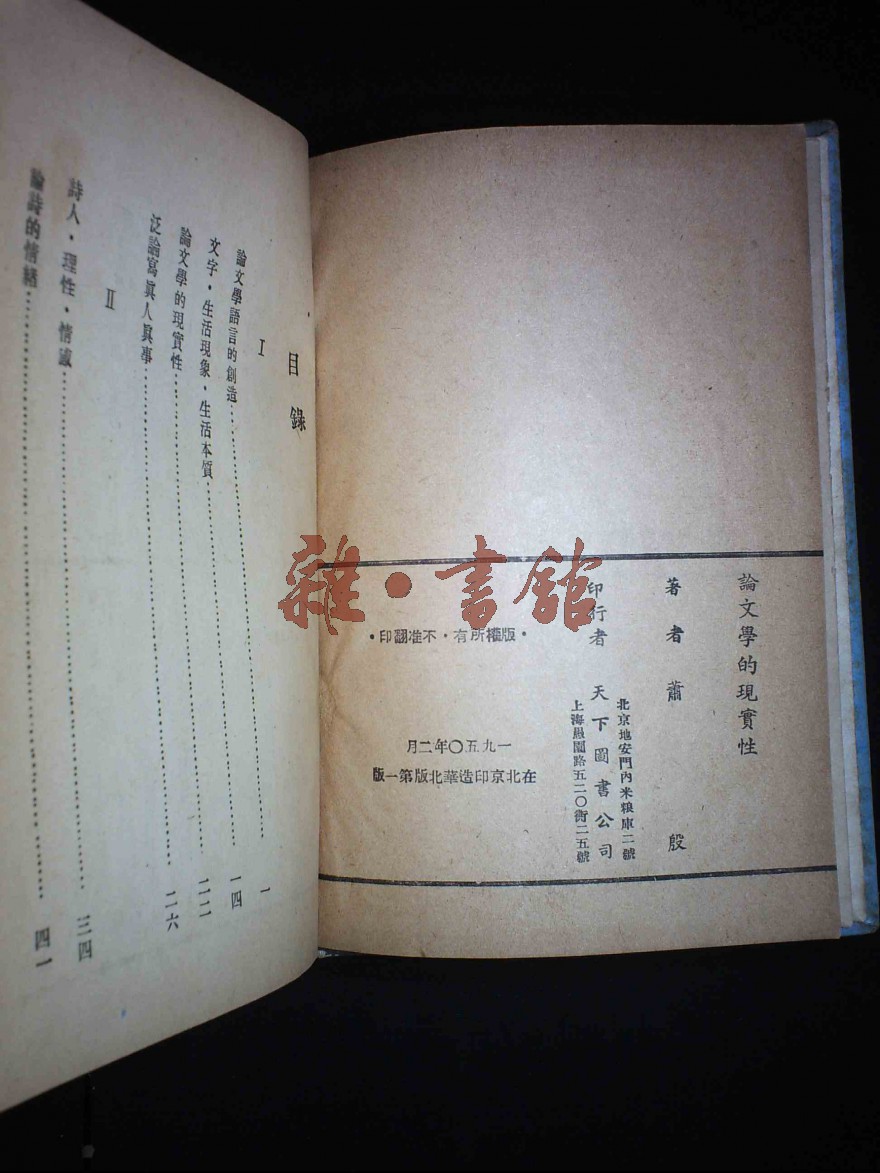 論文學的現實性
著者 蕭殷
印行者 天下圖書公司
北京地安門內米糧庫二號
上海愚園路五二〇街二五號
・版權所有・不准翻印・
一九五〇年二月
在北京印造華北版第一版
目錄
I
論文學語言的創造……一
文字・生活現象・生活本質……一四
論文學的現實性……二二
泛論寫眞人眞事……二六
II
詩人・理性・情感……三四
論詩的情緒……四一
雜・書館